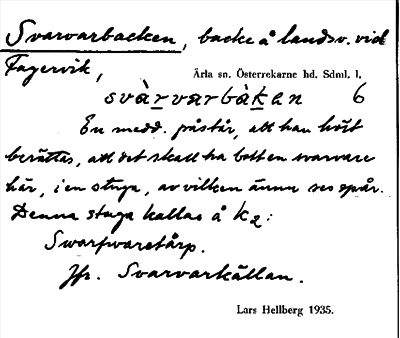 Svarvarbacken, backe å landsv. vid
Fagervik,
Ärla sn. Österrekarne hd. Sdml. l.
svàrvarbàkan 6
En medd. påstår, att han hört
berättas, att det skall ha bott en svarvare
här, i en stuga, av vilken ännu ses spår.
Denna stuga kallas å k2:
Swarfwaretårp.
Jfr. Svarvarkällan.
Lars Hellberg 1935.